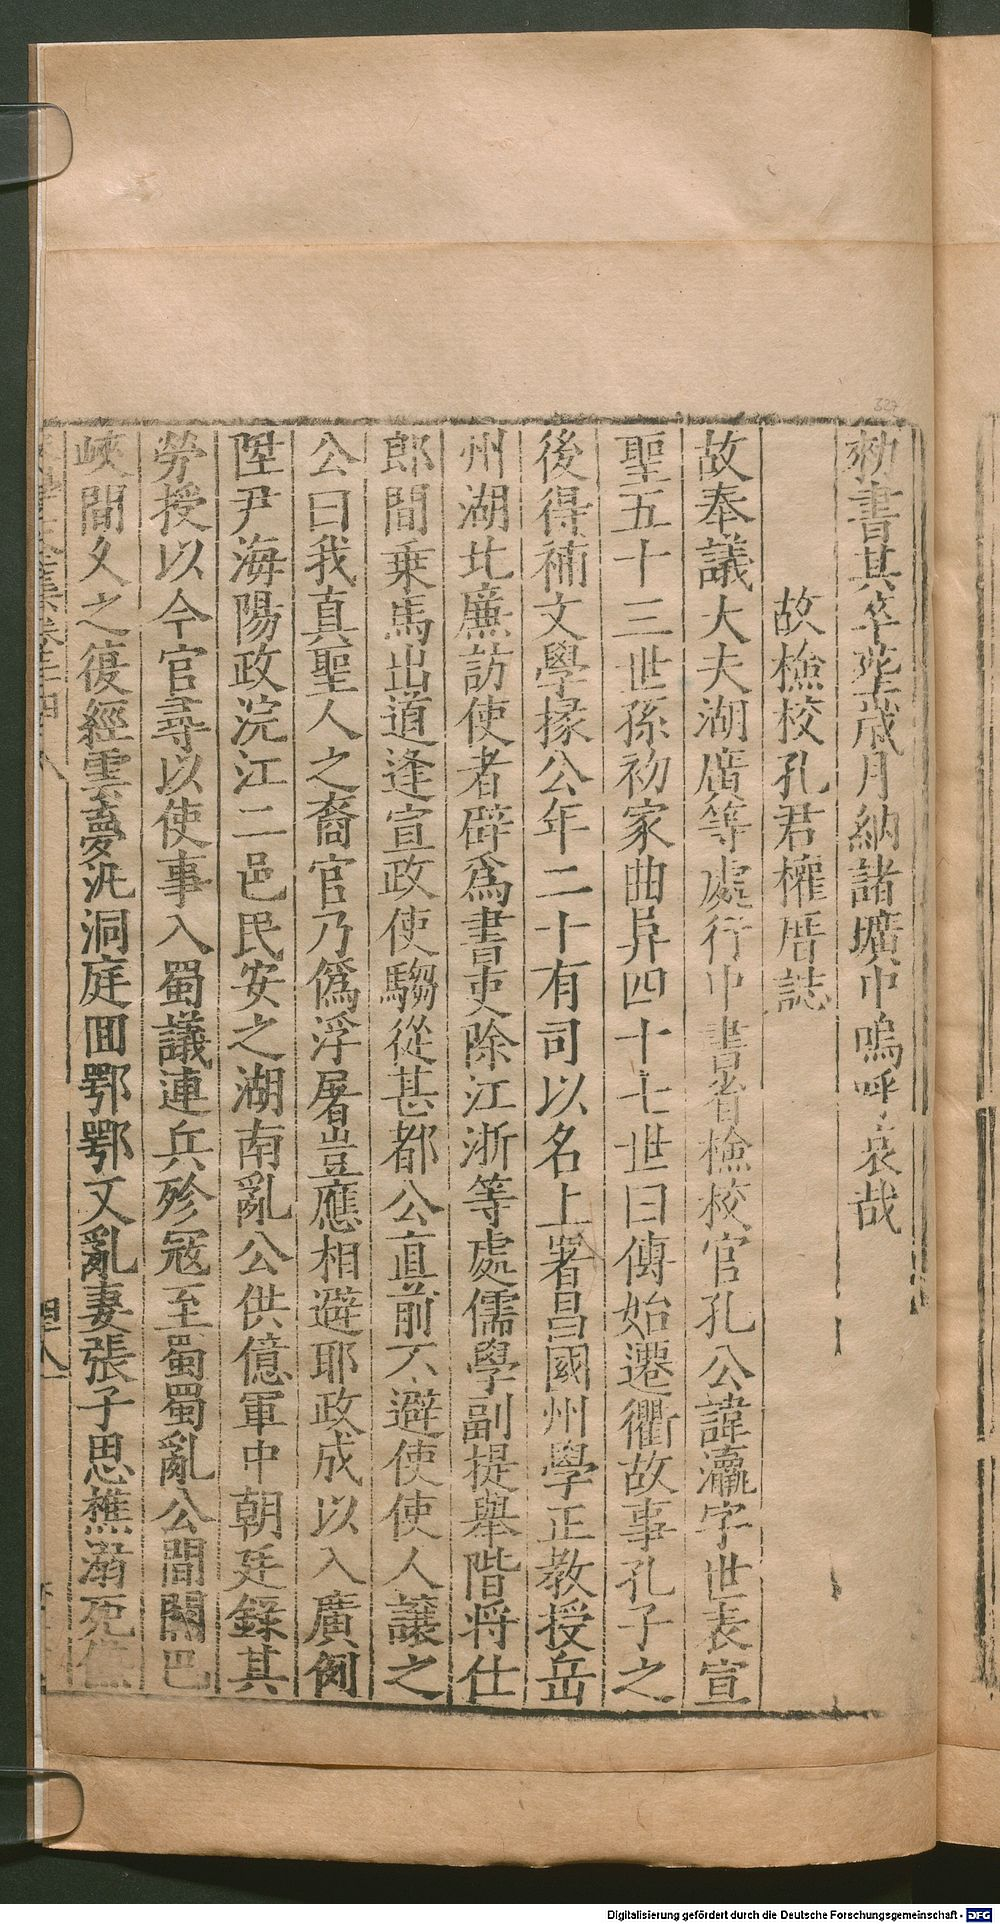 勑書其卒塟歳月納諸壙中嗚呼哀哉
故檢校孔君權厝誌
故奉議大夫湖廣等處行中書省檢校官孔公諱瀛字世表宣
聖五十三世孫初家曲阜四十七世曰傳始遷衢故事孔子之
後得補文學掾公年二十有司以名上署昌國州學正教授岳
州湖北廉訪使者辟爲書吏除江浙等處儒學副提舉階将仕
郎間乗馬出道逢宣政使騶從甚都公直前不避使使人讓之
公曰我真聖人之裔官乃僞浮屠豈應相避耶政成以入廣例
陞尹海陽政浣江二邑民安之湖南亂公供億軍中朝廷錄其
勞授以今官尋以使事入蜀議連兵殄冦至蜀蜀亂公間關巴
峽間久之復經雲夢汎洞庭囬鄂鄂又亂妻張子思樵溺死
四十八
327
Digitalisierung gefördert durch die Deutsche Forschungsgemeinschaft - DFG